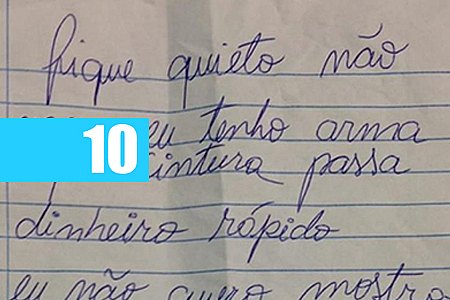 fique quieto não
eu tenho arma
10
cintura passa
dinheiro rápido
eu não quero mostra